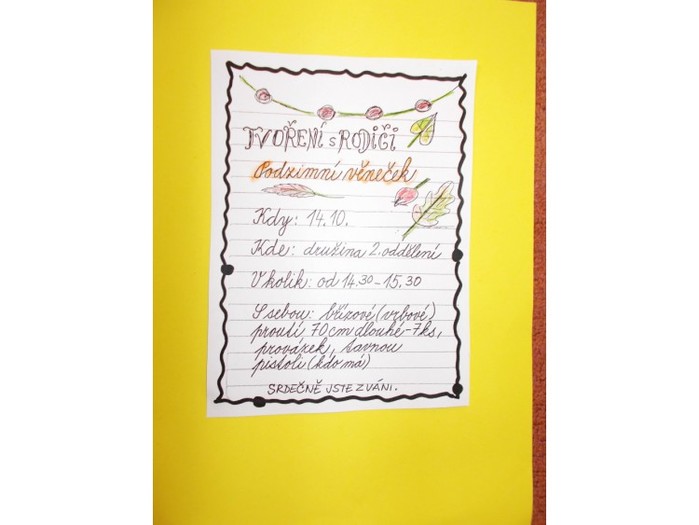 TVOŘENÍ S RODIČI
Podzimní věneček
Kdy: 14.10.
Kde: družina 2. oddělení
V kolik: od 14.30 - 15.30
S sebou: břízové (vrbové)
proutí 70 cm dlouhé - 7 ks,
provázek, tavnou
pistoli (kdo má)
SRDEČNĚ JSTE ZVÁNI.